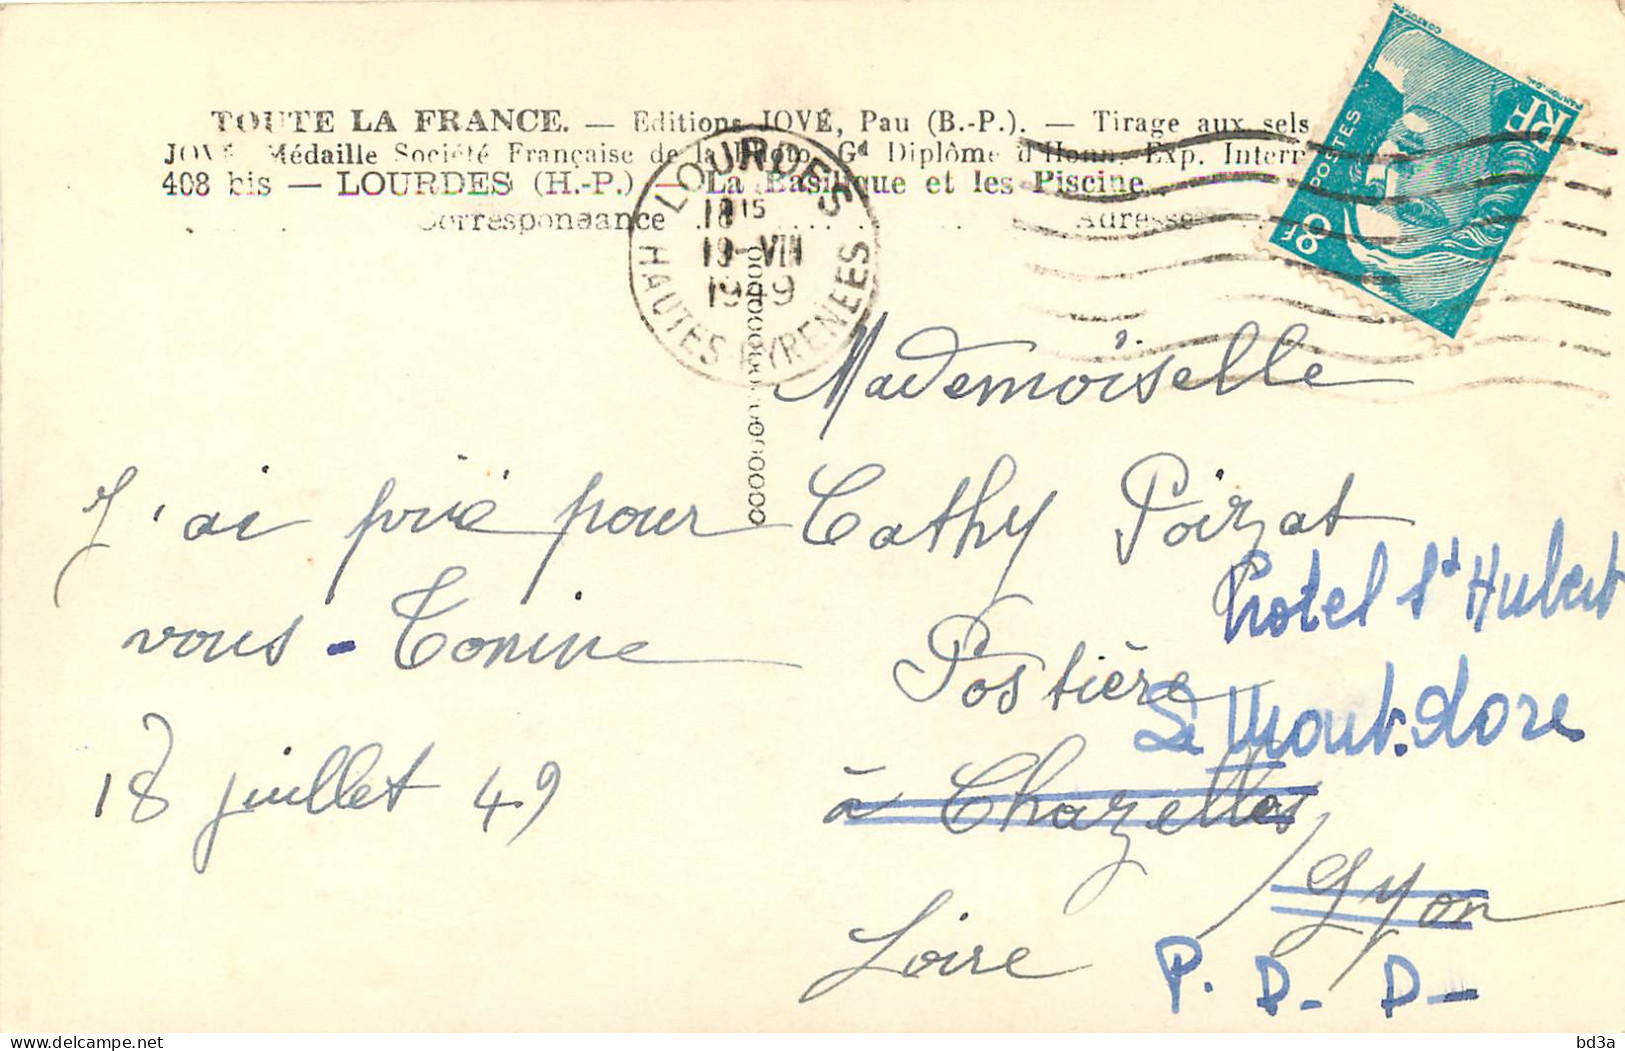 TOUTE LA FRANCE. — Editions JOVÉ, Pau (B.-P.). — Tirage aux sels
JOVÉ, Médaille Société Française de la Photo, Gd Diplôme d'Honn. Exp. Intern
408 bis — LOURDES (H.-P.) — La Basilique et les Piscine.
Correspondance
Adresse
LOURDES
18 15
19-VII
1949
HAUTES PYRENEES
POSTES
8f
RF
Mademoiselle
J'ai prié pour
vous - Tonine
18 juillet 49
Cathy Poizat
Postière
à Chazelles
/Lyon
Loire
Hotel St Hubert
Le Mont-Dore
P. D. D-
bd3a